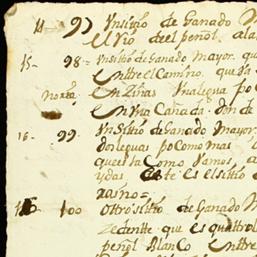 14 97 Un sittio de Ganado M
el Rio de el peñol, ala
15- 98= Un sittio de Ganado Mayor. que
enttre el Camino. que va
en Zinas Una legua po Co
en Una Cañada. don de
16- 99. Un Sittio de Ganado Mayor.
dos leguas po Co mas
queestta Como Vamos
ydas este es el sittio d
zaino=
100 Ottro sittio de Ganado M
Zedentte que es quattro
peñol Blanco enttre